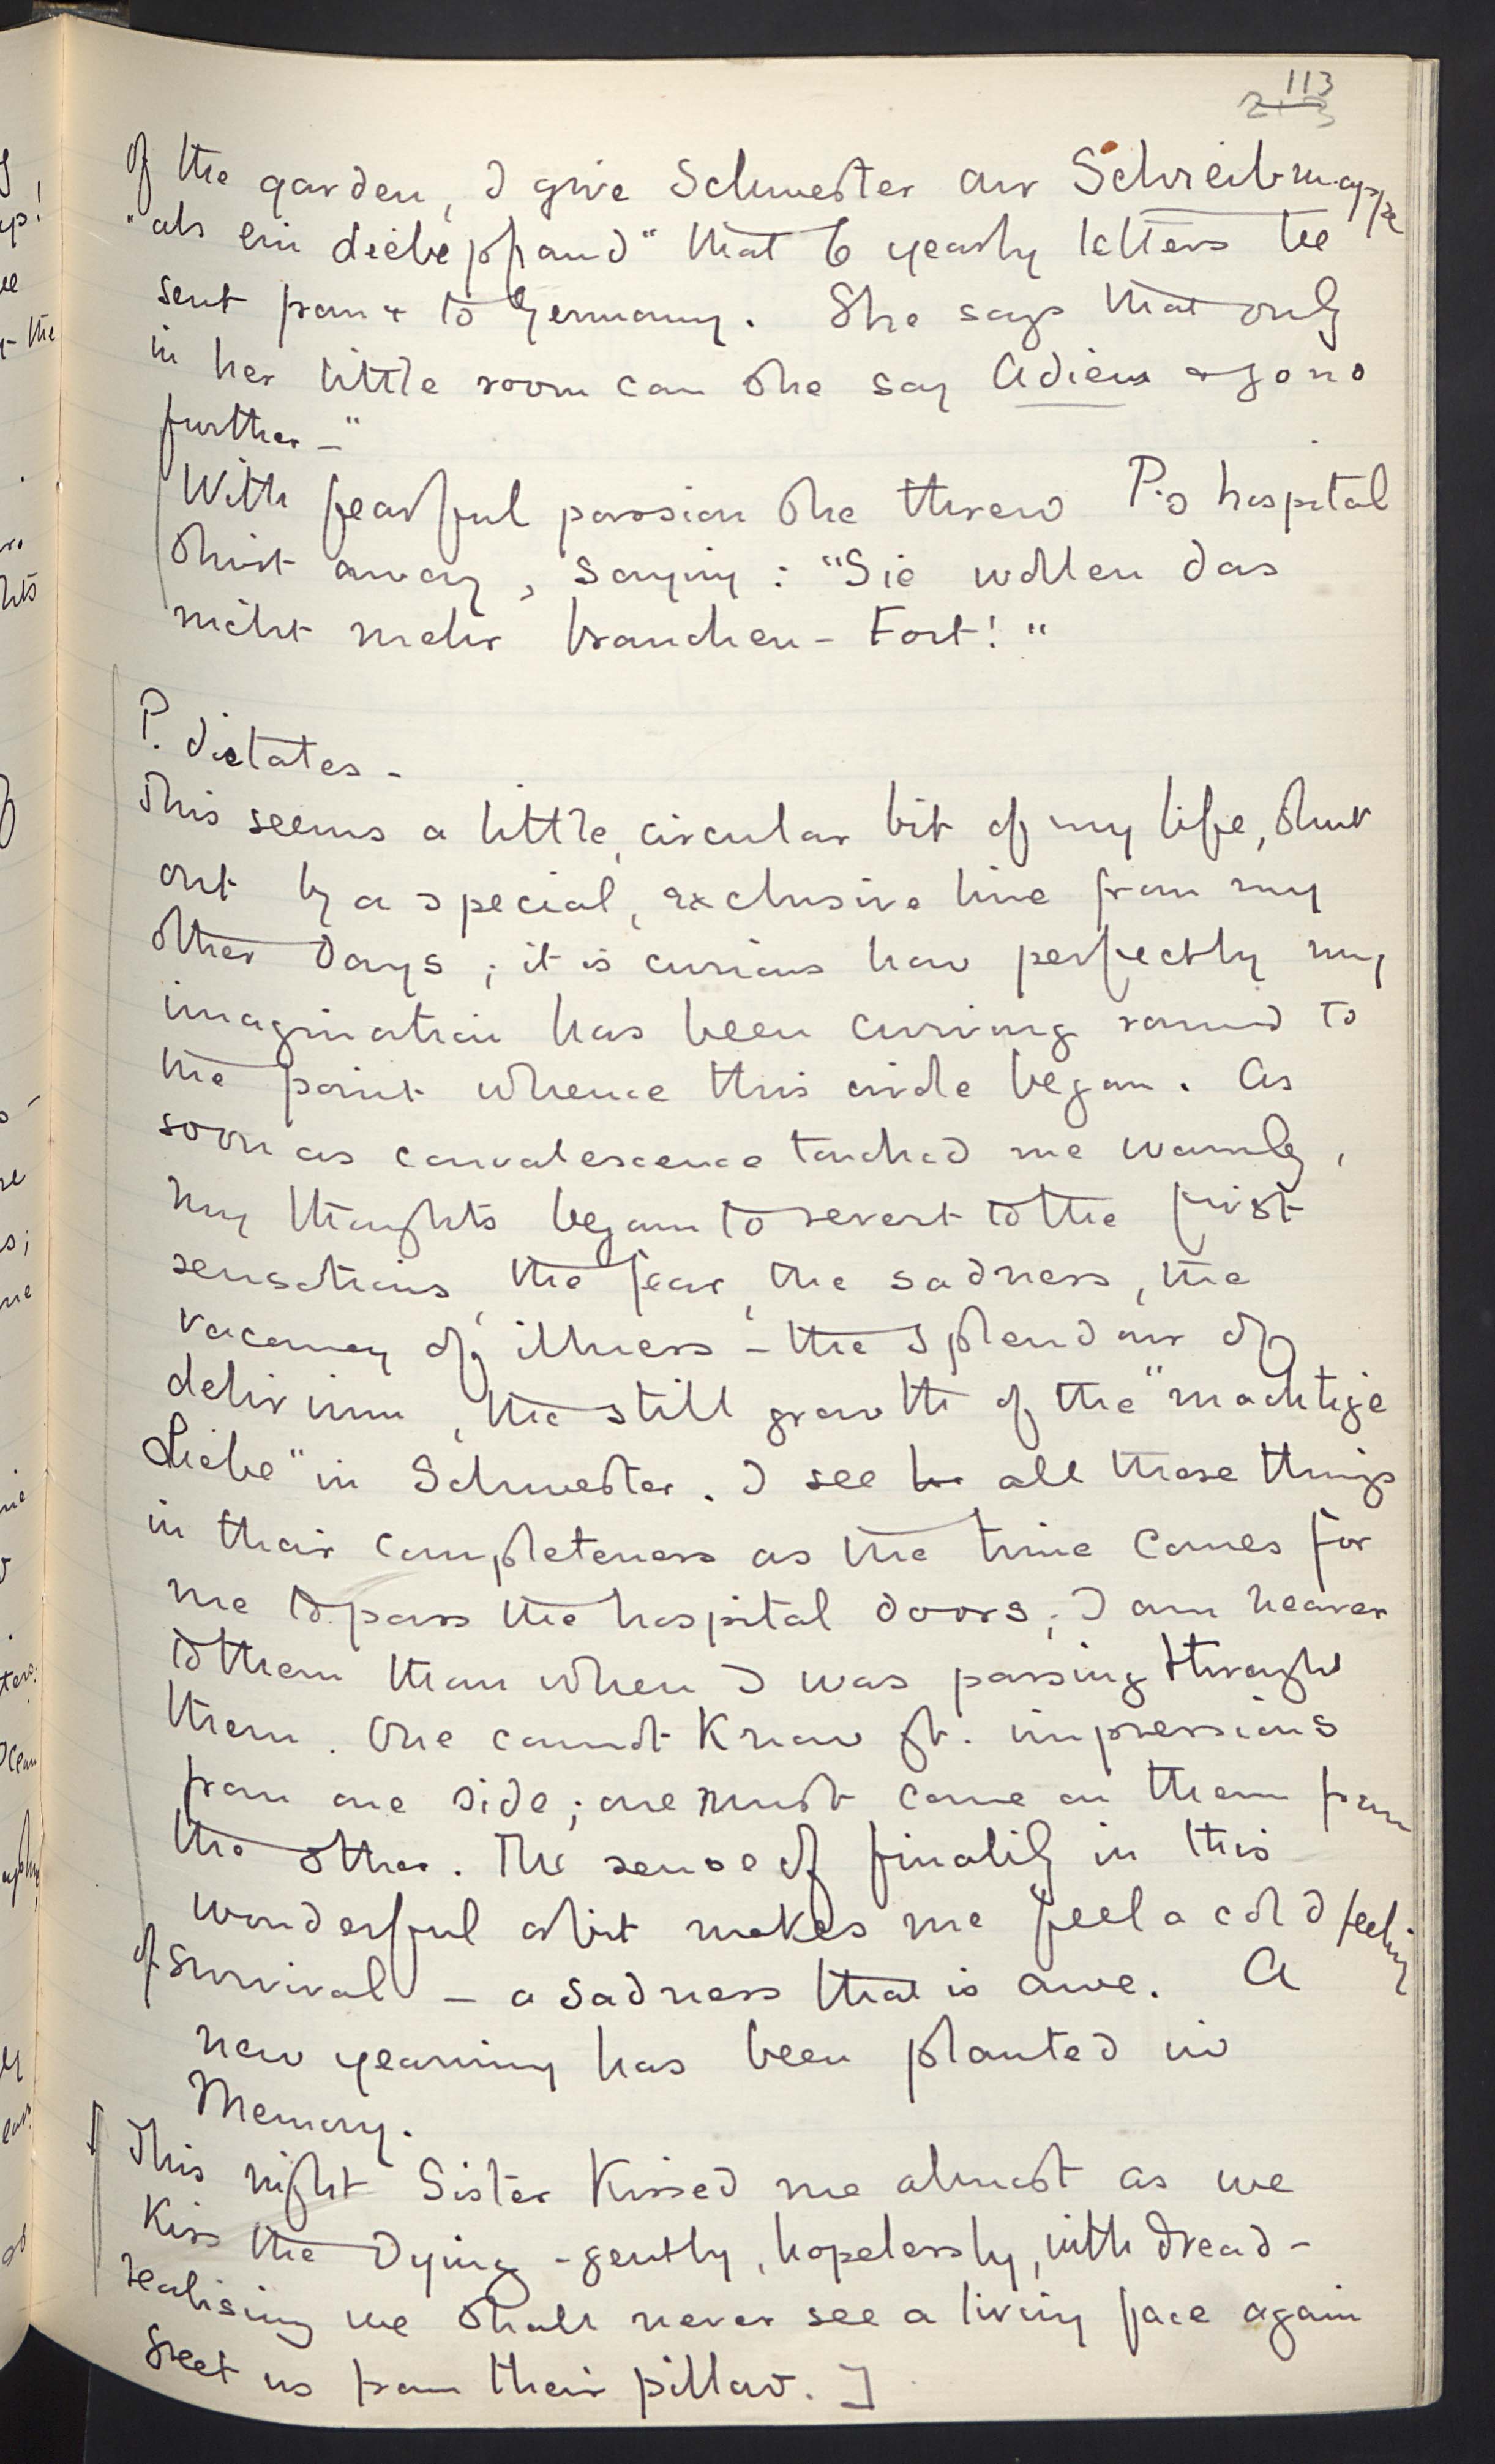 113
of the garden, I give Schwester our Schreibmappe
"als ein Liebepfand" that 6 yearly letters be
sent from & to Germany. She says that only
in her little room can she say Adieu & go no
further –"
With fearful passion she threw P's hospital
shirt away, saying: "Sie wollen das
nicht mehr brauchen – Fort!"
P. dictates –
This seems a little, circular bit of my life, shut
out by a special, exclusive line from my
other days; it is curious how perfectly my
imagination has been curving round to
the point whence this circle began. As
soon as convalescence touched me warmly,
my thoughts began to revert to the first
sensations, the fear, the sadness, the
vacancy of illness – the splendour of
delirium, the still growth of the "machtige
Liebe" in Schwester. I see all these things
in their completeness as the time comes for
me to pass the hospital doors; I am nearer
to them than when I was passing through
them. One cannot know gt. impressions
from one side; one must come on them from
the other. The sense of finality in this
wonderful orbit makes me feel a cold feeling
of survival – a sadness that is awe. A
new yearning has been planted in
Memory.
[This night Sister kissed me almost as we
kiss the Dying – gently, hopelessly, with dread –
realising we shall never see a living face again
greet us from their pillow.]